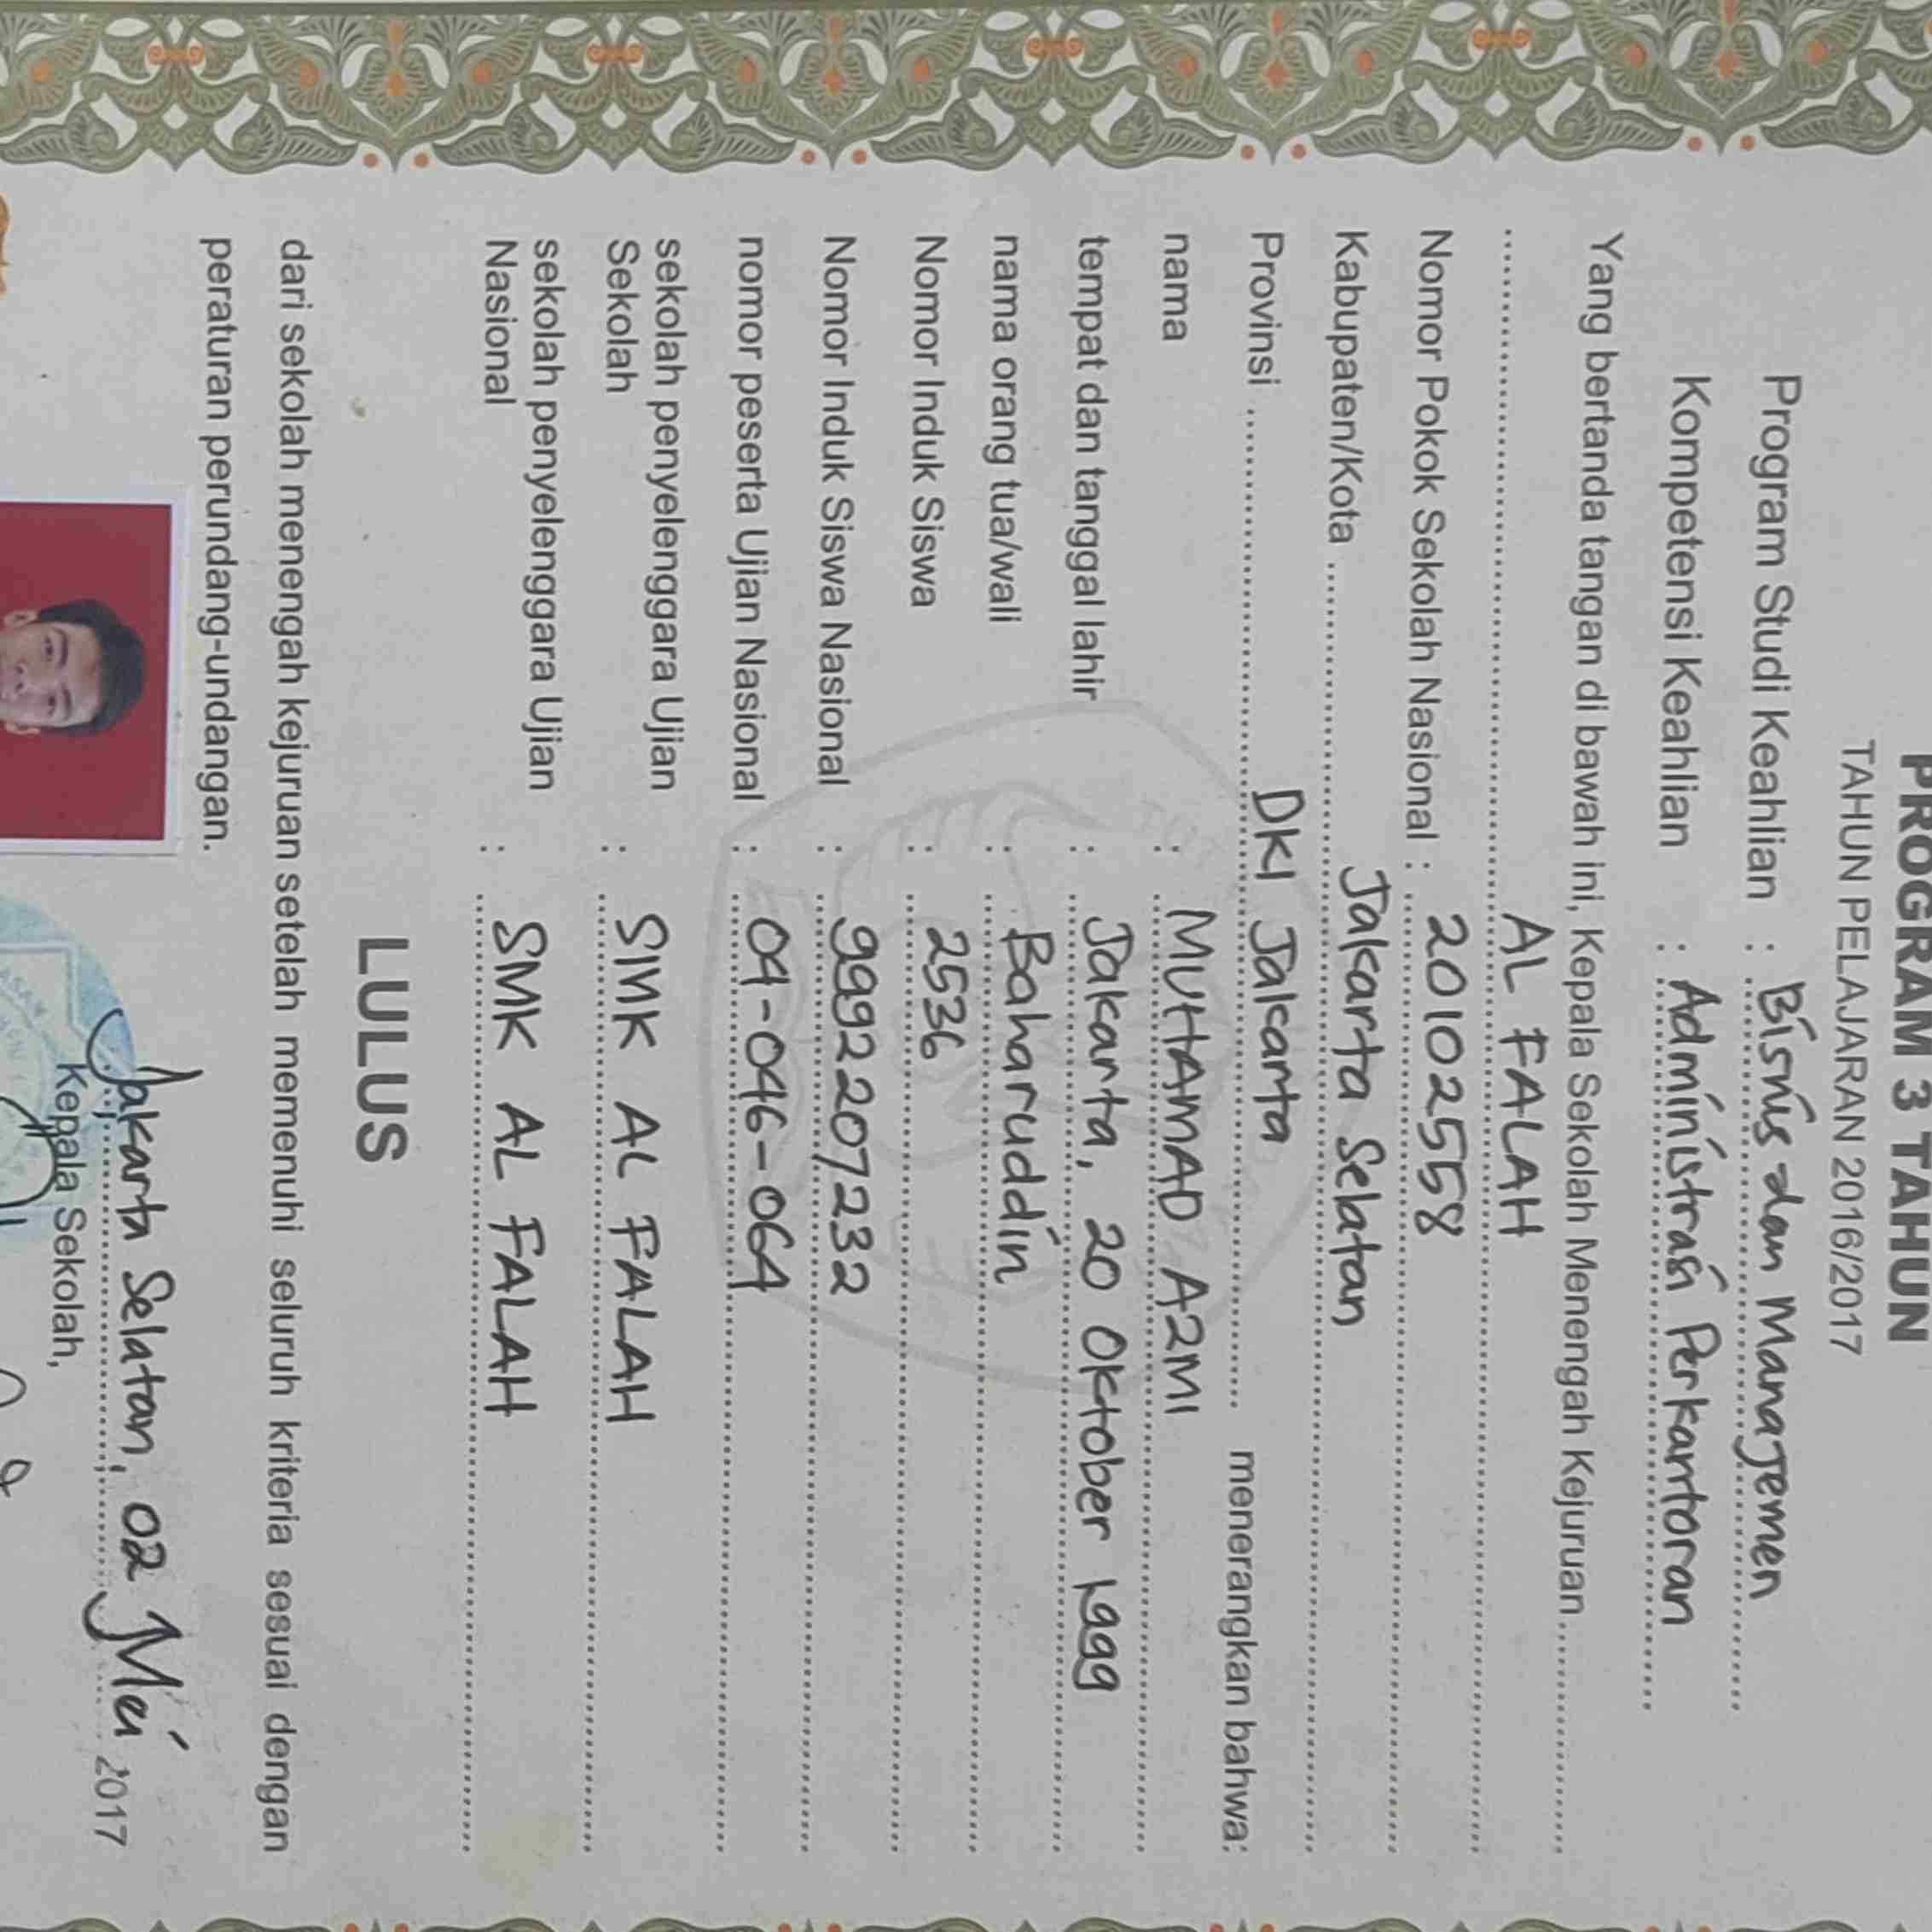 PROGRAM 3 TAHUN
TAHUN PELAJARAN 2016/2017
Program Studi Keahlian : Bisnis dan Manajemen
Kompetensi Keahlian : Administrasi Perkantoran
Yang bertanda tangan di bawah ini, Kepala Sekolah Menengah Kejuruan
AL FALAH
Nomor Pokok Sekolah Nasional : 20102558
Kabupaten/Kota Jakarta Selatan
Provinsi DKI Jakarta menerangkan bahwa:
nama : MUHAMAD AZMI
tempat dan tanggal lahir : Jakarta, 20 Oktober 1999
nama orang tua/wali : Baharuddin
Nomor Induk Siswa : 2536
Nomor Induk Siswa Nasional : 9992207232
nomor peserta Ujian Nasional : 04-046-064
sekolah penyelenggara Ujian : SMK AL FALAH
Sekolah
sekolah penyelenggara Ujian : SMK AL FALAH
Nasional
LULUS
dari sekolah menengah kejuruan setelah memenuhi seluruh kriteria sesuai dengan
peraturan perundang-undangan.
Jakarta Selatan, 02 Mei 2017
Kepala Sekolah,